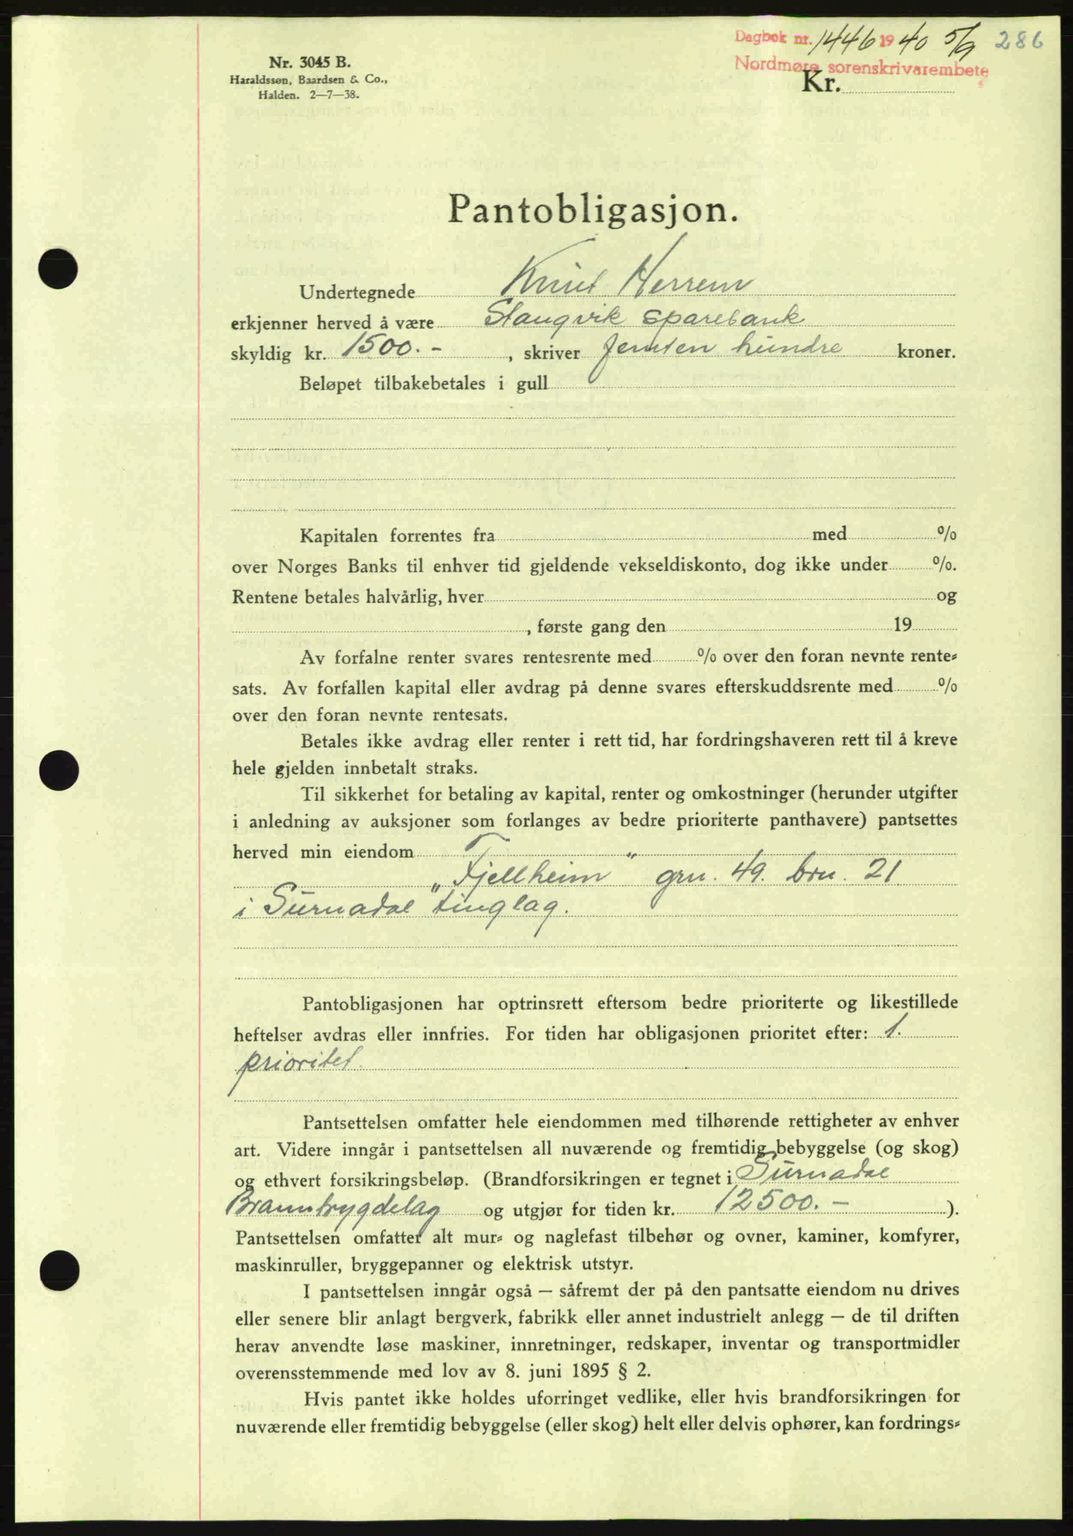 Dagbok nr. 1446 1940 5/9 286
Nordmøre sorenskrivarembete
Nr. 3045 B.
Haraldssen, Baardsen & Co.,
Halden. 2—7—38.
Kr.
Pantobligasjon.
Undertegnede Knut Herrem
erkjenner herved å være Stangvik Sparebank
skyldig kr. 1500.- , skriver femten hundre kroner.
Beløpet tilbakebetales i gull
Kapitalen forrentes fra med %
over Norges Banks til enhver tid gjeldende vekseldiskonto, dog ikke under %.
Rentene betales halvårlig, hver og
, første gang den 19
Av forfalne renter svares rentesrente med % over den foran nevnte rente-
sats. Av forfallen kapital eller avdrag på denne svares efterskuddsrente med %
over den foran nevnte rentesats.
Betales ikke avdrag eller renter i rett tid, har fordringshaveren rett til å kreve
hele gjelden innbetalt straks.
Til sikkerhet for betaling av kapital, renter og omkostninger (herunder utgifter
i anledning av auksjoner som forlanges av bedre prioriterte panthavere) pantsettes
herved min eiendom
„Fjellheim" gnr. 49. bnr. 21
i Surnadal tinglag.
Pantobligasjonen har optrinsrett eftersom bedre prioriterte og likestillede
heftelser avdras eller innfries. For tiden har obligasjonen prioritet efter: 1.
prioritet.
Pantsettelsen omfatter hele eiendommen med tilhørende rettigheter av enhver
art. Videre inngår i pantsettelsen all nuværende og fremtidig bebyggelse (og skog)
og ethvert forsikringsbeløp. (Brandforsikringen er tegnet i Surnadal
Branntrygdelag og utgjør for tiden kr. 12500.- ).
Pantsettelsen omfatter alt mur- og naglefast tilbehør og ovner, kaminer, komfyrer,
maskinruller, bryggepanner og elektrisk utstyr.
I pantsettelsen inngår også — såfremt der på den pantsatte eiendom nu drives
eller senere blir anlagt bergverk, fabrikk eller annet industrielt anlegg — de til driften
herav anvendte løse maskiner, innretninger, redskaper, inventar og transportmidler
overensstemmende med lov av 8. juni 1895 § 2.
Hvis pantet ikke holdes uforringet vedlike, eller hvis brandforsikringen for
nuværende eller fremtidig bebyggelse (eller skog) helt eller delvis ophører, kan fordrings-